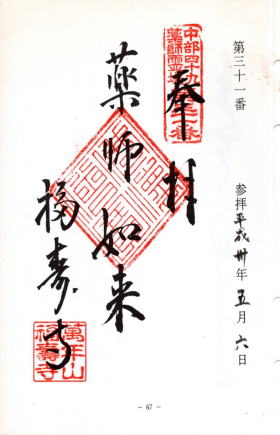 第三十一番
参拝平成卅年五月六日
奉拝
藥師如来
福寿寺
中部四十九
薬師霊
萬年山
福壽寺
- 67 -